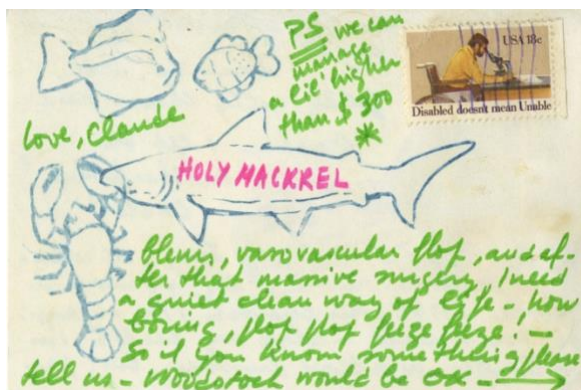 PS we can
manage
a lil' higher
than $300
*
USA 18c
Disabled doesn't mean Unable
love, Claude
HOLY MACKREL
vasovascular flop, and af-
ter that massive surgery, I need
a quiet clean way of life - how
boring, flop flop
So if you know something please
tell us - Woodstock would be OK